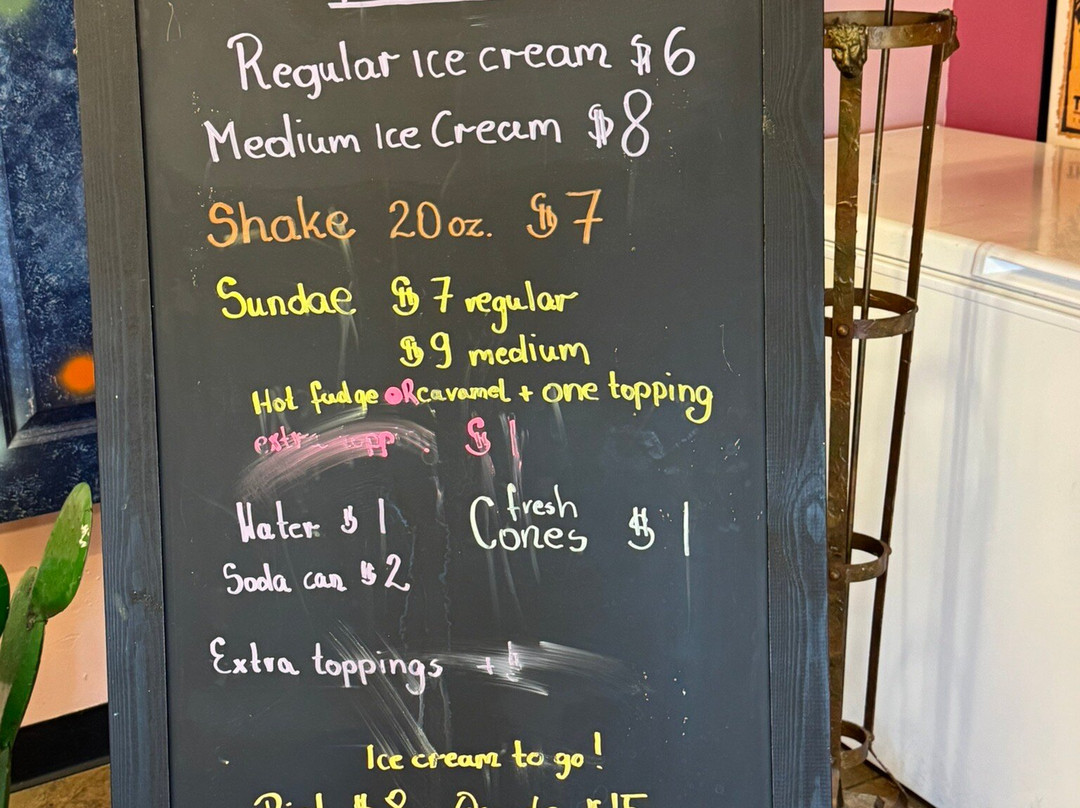 Regular Ice cream $6
Medium Ice Cream $8
Shake 20 oz. $7
Sundae $7 regular
$9 medium
Hot fudge OR caramel + one topping
extra topp $1
Water $1
fresh Cones $1
Soda can $2
Extra toppings +
Ice cream to go!